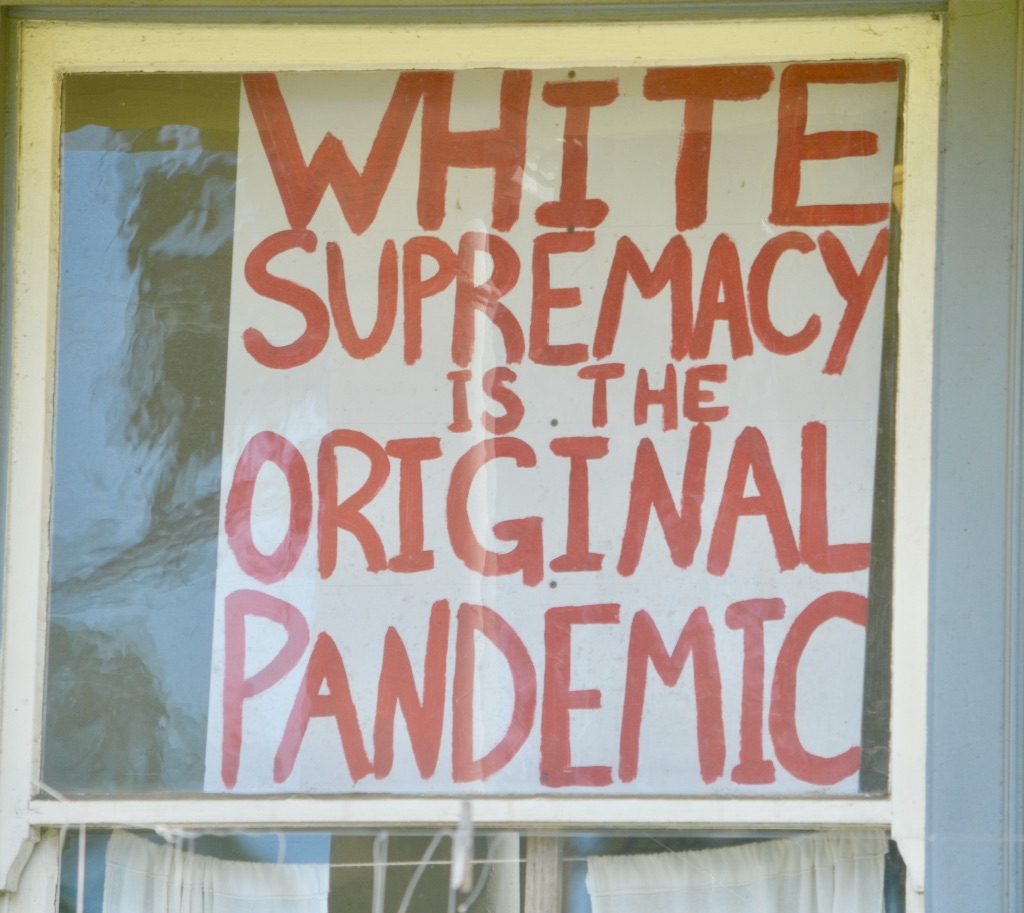 WHITE
SUPREMACY
IS THE
ORIGINAL
PANDEMIC